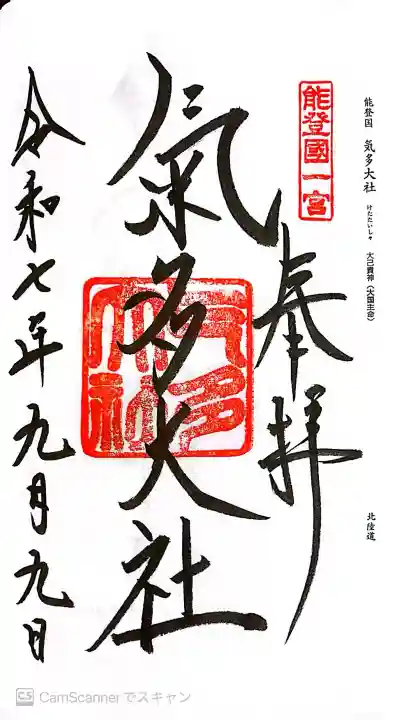 能登国 気多大社 けたたいしゃ 大己貴神(大国主命)
北陸道
能登國一宮
奉拝
氣多大社
気多大社
令和七年九月九日
CS CamScannerでスキャン